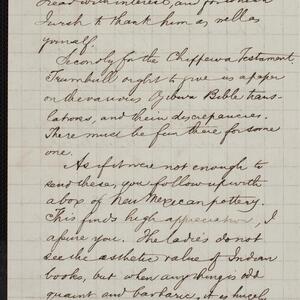 read with interest, and for which
I wish to thank him as well as
yourself.
Secondly for the Chippewa Testament,
Trumbull ought to give us a paper
on the various Ojibwa Bible trans-
lations, and their discrepancies.
There must be fun there for some
one.
As if it were not enough to
send these, you follow up with
a box of New Mexican pottery.
This finds high appreciation, I
assure you. The ladies do not
see the aesthetic value of Indian
books, but when anything is old
quaint and barbaric, it is